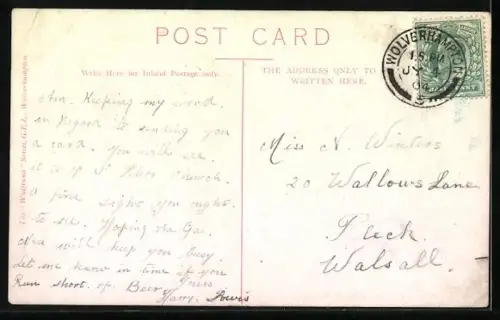 POST CARD
Write Here for Inland Postage only.
THE ADDRESS ONLY TO
WRITTEN HERE.
The "Wulfruna" Series, G.E.L., Wolverhampton
WOLVERHAMPTON
JY 4
04
S
Keeping my word
in Regard to sending you
a card. You will see
it is of St Peters Church.
A fine sight you ought
to see. Hoping the Gas
will keep you busy.
Let me know in time if you
Run short of Beer. Yours
Harry. Lewis
Miss N. Winters
20 Wallows Lane
Pleck
Walsall.